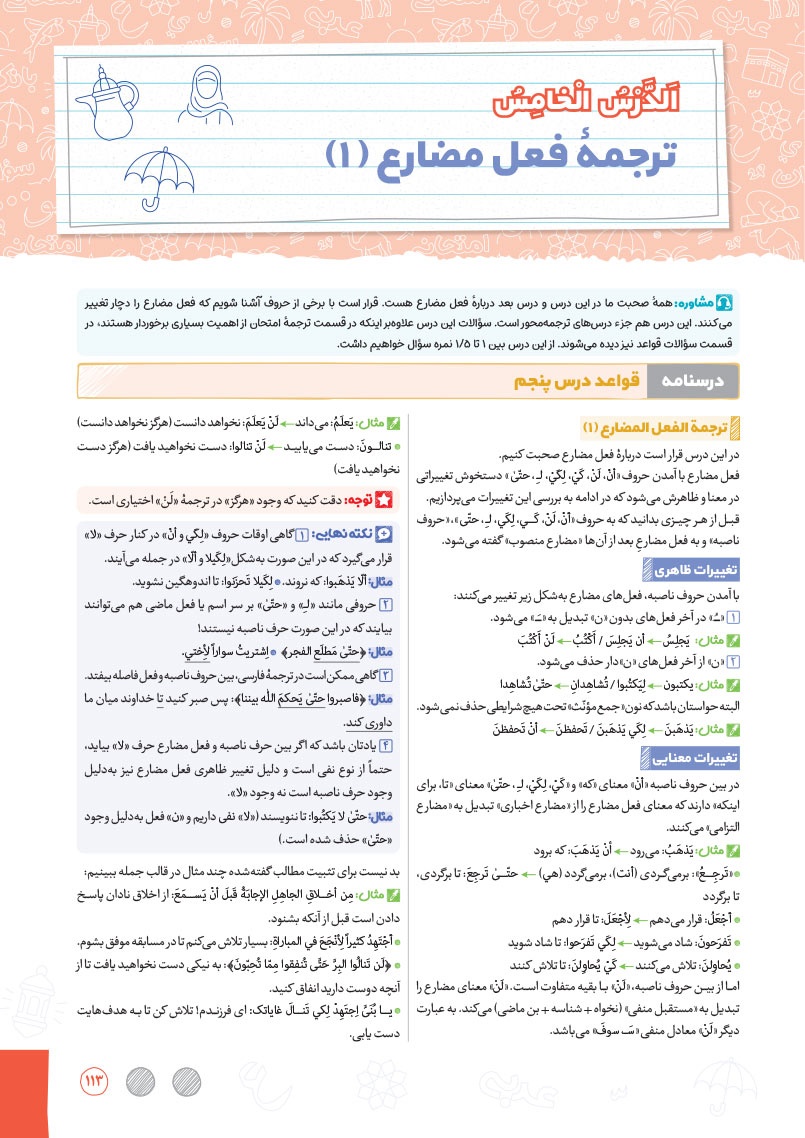 اَلدَّرْسُ الْخامِسُ
ترجمهٔ فعل مضارع (۱)
مشاوره: همهٔ صحبت ما در این درس و درس بعد دربارهٔ فعل مضارع هست. قرار است با برخی از حروف آشنا شویم که فعل مضارع را دچار تغییر
می‌کنند. این درس هم جزء درس‌های ترجمه‌محور است. سؤالات این درس علاوه‌بر اینکه در قسمت ترجمهٔ امتحان از اهمیت بسیاری برخوردار هستند، در
قسمت سؤالات قواعد نیز دیده می‌شوند. از این درس بین ۱ تا ۱/۵ نمره سؤال خواهیم داشت.
درسنامه قواعد درس پنجم
ترجمة الفعل المضارع (۱)
در این درس قرار است دربارهٔ فعل مضارع صحبت کنیم.
فعل مضارع با آمدن حروف «أنْ، لَنْ، کَيْ، لِکَيْ، لِـ، حتّیٰ» دستخوش تغییراتی
در معنا و ظاهرش می‌شود که در ادامه به بررسی این تغییرات می‌پردازیم.
قبل از هر چیزی بدانید که به حروف «أنْ، لَنْ، کَـي، لِکَي، لِـ، حتّی»، «حروف
ناصبه» و به فعل مضارعِ بعد از آن‌ها «مضارع منصوب» گفته می‌شود.
تغییرات ظاهری
با آمدن حروف ناصبه، فعل‌های مضارع به‌شکل زیر تغییر می‌کنند:
۱ «ـُ» در آخر فعل‌های بدون «ن» تبدیل به «ـَ» می‌شود.
مثال: یَجلِسُ ← أن یَجلِسَ / أکْتُبُ ← لَنْ أکْتُبَ
۲ «ن» از آخر فعل‌های «ن»دار حذف می‌شود.
مثال: یکتبون ← لِیَکتُبوا / تُشاهِدانِ ← حتّیٰ تُشاهِدا
البته حواستان باشد که نون «جمع مؤنّث» تحت هیچ شرایطی حذف نمی‌شود.
مثال: یَذهَبنَ ← لِکَي یَذهَبنَ / تَحفظنَ ← أنْ تَحفظنَ
تغییرات معنایی
در بین حروف ناصبه «أنْ» معنای «که» و «کَيْ، لِکَيْ، لِـ، حتّیٰ» معنای «تا، برای
اینکه» دارند که معنای فعل مضارع را از «مضارع اخباری» تبدیل به «مضارع
التزامی» می‌کنند.
مثال: یَذهَبُ: می‌رود ← أنْ یَذهَبَ: که برود
«تَرجِـعُ»: برمی‌گردی (أنت)، برمی‌گردد (هي) ← حتّـیٰ تَرجِعَ: تا برگردی،
تا برگردد
أجْعَلُ: قرار می‌دهم ← لِأجْعَلَ: تا قرار دهم
تَفرَحونَ: شاد می‌شوید ← لِکَي تَفرَحوا: تا شاد شوید
یُحاوِلنَ: تلاش می‌کنند ← کَيْ یُحاوِلنَ: تا تلاش کنند
اما از بیـن حروف ناصبه، «لَنْ» بـا بقیه متفاوت است. «لَنْ» معنای مضارع را
تبدیل به «مستقبل منفی» (نخواه + شناسه + بن ماضی) می‌کند. به عبارت
دیگر «لَنْ» معادل منفی «سَـ، سوفَ» می‌باشد.
مثال: یَعلَمُ: می‌داند ← لَنْ یَعلَمَ: نخواهد دانست (هرگز نخواهد دانست)
تنالـونَ: دست می‌یابیـد ← لَنْ تنالوا: دست نخواهید یافت (هرگز دست
نخواهید یافت)
توجه: دقت کنید که وجود «هرگز» در ترجمهٔ «لَنْ» اختیاری است.
نکته نهایی: ۱ گاهی اوقات حروف «لِکَي و أنْ» در کنار حرف «لا»
قرار می‌گیرد که در این صورت به‌شکل «لِکَیلا و ألّا» در جمله می‌آیند.
مثال: ألّا یَذهَبوا: که نروند. لِکَیلا تَحزَنوا: تا اندوهگین نشوید.
۲ حروفی مانند «لِـ» و «حتّیٰ» بر سر اسم یا فعل ماضی هم می‌توانند
بیایند که در این صورت حرف ناصبه نیستند!
مثال: ﴿حتّیٰ مَطلَعِ الفجر﴾ اِشتریتُ سواراً لِأختي.
۳ گاهی ممکن است در ترجمهٔ فارسی، بین حروف ناصبه و فعل فاصله بیفتد.
مثال: ﴿فاصبروا حتّیٰ یَحکمَ اللّٰه بیننا﴾: پس صبر کنید تا خداوند میان ما
داوری کند.
۴ یادتان باشد که اگر بین حرف ناصبه و فعل مضارع حرف «لا» بیاید،
حتماً از نوع نفی است و دلیل تغییر ظاهری فعل مضارع نیز به‌دلیل
وجود حرف ناصبه است نه وجود «لا».
مثال: حتّیٰ لا یَکتُبوا: تا ننویسند («لا» نفی داریم و «ن» فعل به‌دلیل وجود
«حتّیٰ» حذف شده است.)
بد نیست برای تثبیت مطالب گفته‌شده چند مثال در قالب جمله ببینیم:
مثال: مِن أخـلاقِ الجاهِلِ الإجابَةُ قَبلَ أنْ یَسـمَعَ: از اخلاق نادان پاسخ
دادن است قبل از آنکه بشنود.
أجْتَهِدُ کثیراً لِأنْجَحَ في المباراةِ: بسیار تلاش می‌کنم تا در مسابقه موفق بشوم.
﴿لَن تَنالُوا البِرَّ حَتَّی تُنفِقوا مِمّا تُحِبّونَ﴾: به نیکی دست نخواهید یافت تا از
آنچه دوست دارید انفاق کنید.
یـا بُنَيَّ اِجتَهِدْ لِکي تَنـالَ غایاتک: ای فرزندم! تلاش کن تا به هدف‌هایت
دست یابی.
۱۱۳